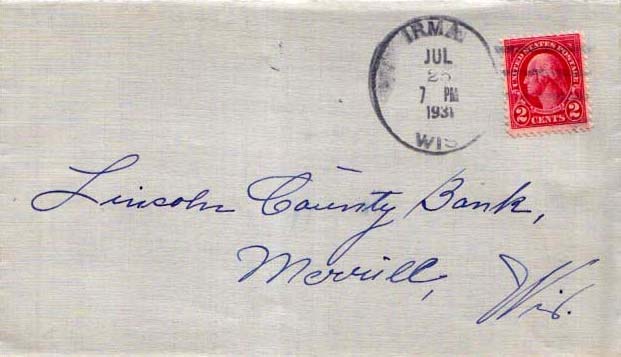 IRMA
JUL
25
7 PM
1931
WIS
UNITED STATES POSTAGE
2 CENTS 2
Lincoln County Bank,
Merrill,
Wis.